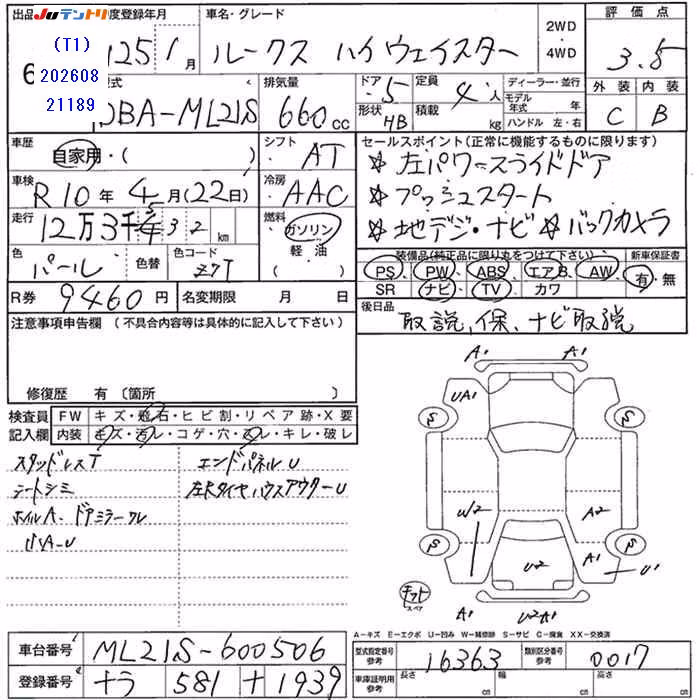 出品
JUテントリ
初度登録年月
(T1)
202608
21189
25 1 月
車名・グレード
ルークス ハイウェイスター
2WD
4WD
評価点
3.5
型式
DBA-ML21S
排気量
660 cc
ドア 5
形状 HB
定員 4 人
積載 kg
ディーラー・並行
モデル年式 年
ハンドル 左・右
外装 内装
C B
車歴
自家用・( )
シフト AT
車検
R10年 4月(22日)
冷房 AAC
走行
12万3千5 3 2 km
燃料
ガソリン
軽油
( )
色
パール
色替
色コード
Z7T
R券 9460円
名変期限 月 日
セールスポイント(正常に機能するものに限ります)
☆左パワースライドドア
☆プッシュスタート
☆地デジ・ナビ ☆バックカメラ
装備品(純正品に限り丸をつけて下さい)
新車保証書
PS PW ABS エアB AW
SR ナビ TV カワ
有・無
後日品
取説、保、ナビ取説
注意事項申告欄(不具合内容等は具体的に記入して下さい)
修復歴 有〔箇所 〕
検査員
記入欄
FW キズ・飛石・ヒビ割・リペア跡・X要
内装 キズ・汚レ・コゲ・穴・スレ・キレ・破レ
スタッドレスT
シートシミ
ホイルA、ドアミラーワレ
エンドパネルU
左Rタイヤハウスアウターu
A1 A1
UA1
S S
W2
A2
A1
U2
S S
U1
キズト
スペア
A1
U2A1
A-キズ E-エクボ U-凹み W-補修跡 S-サビ C-腐食 XX-交換済
車台番号 ML21S-600506
登録番号 ナラ 581 ナ 1939
型式指定番号
参考
16363
類別区分番号
参考
0017
車庫証明用
参考
長さ cm
幅 cm
高さ cm